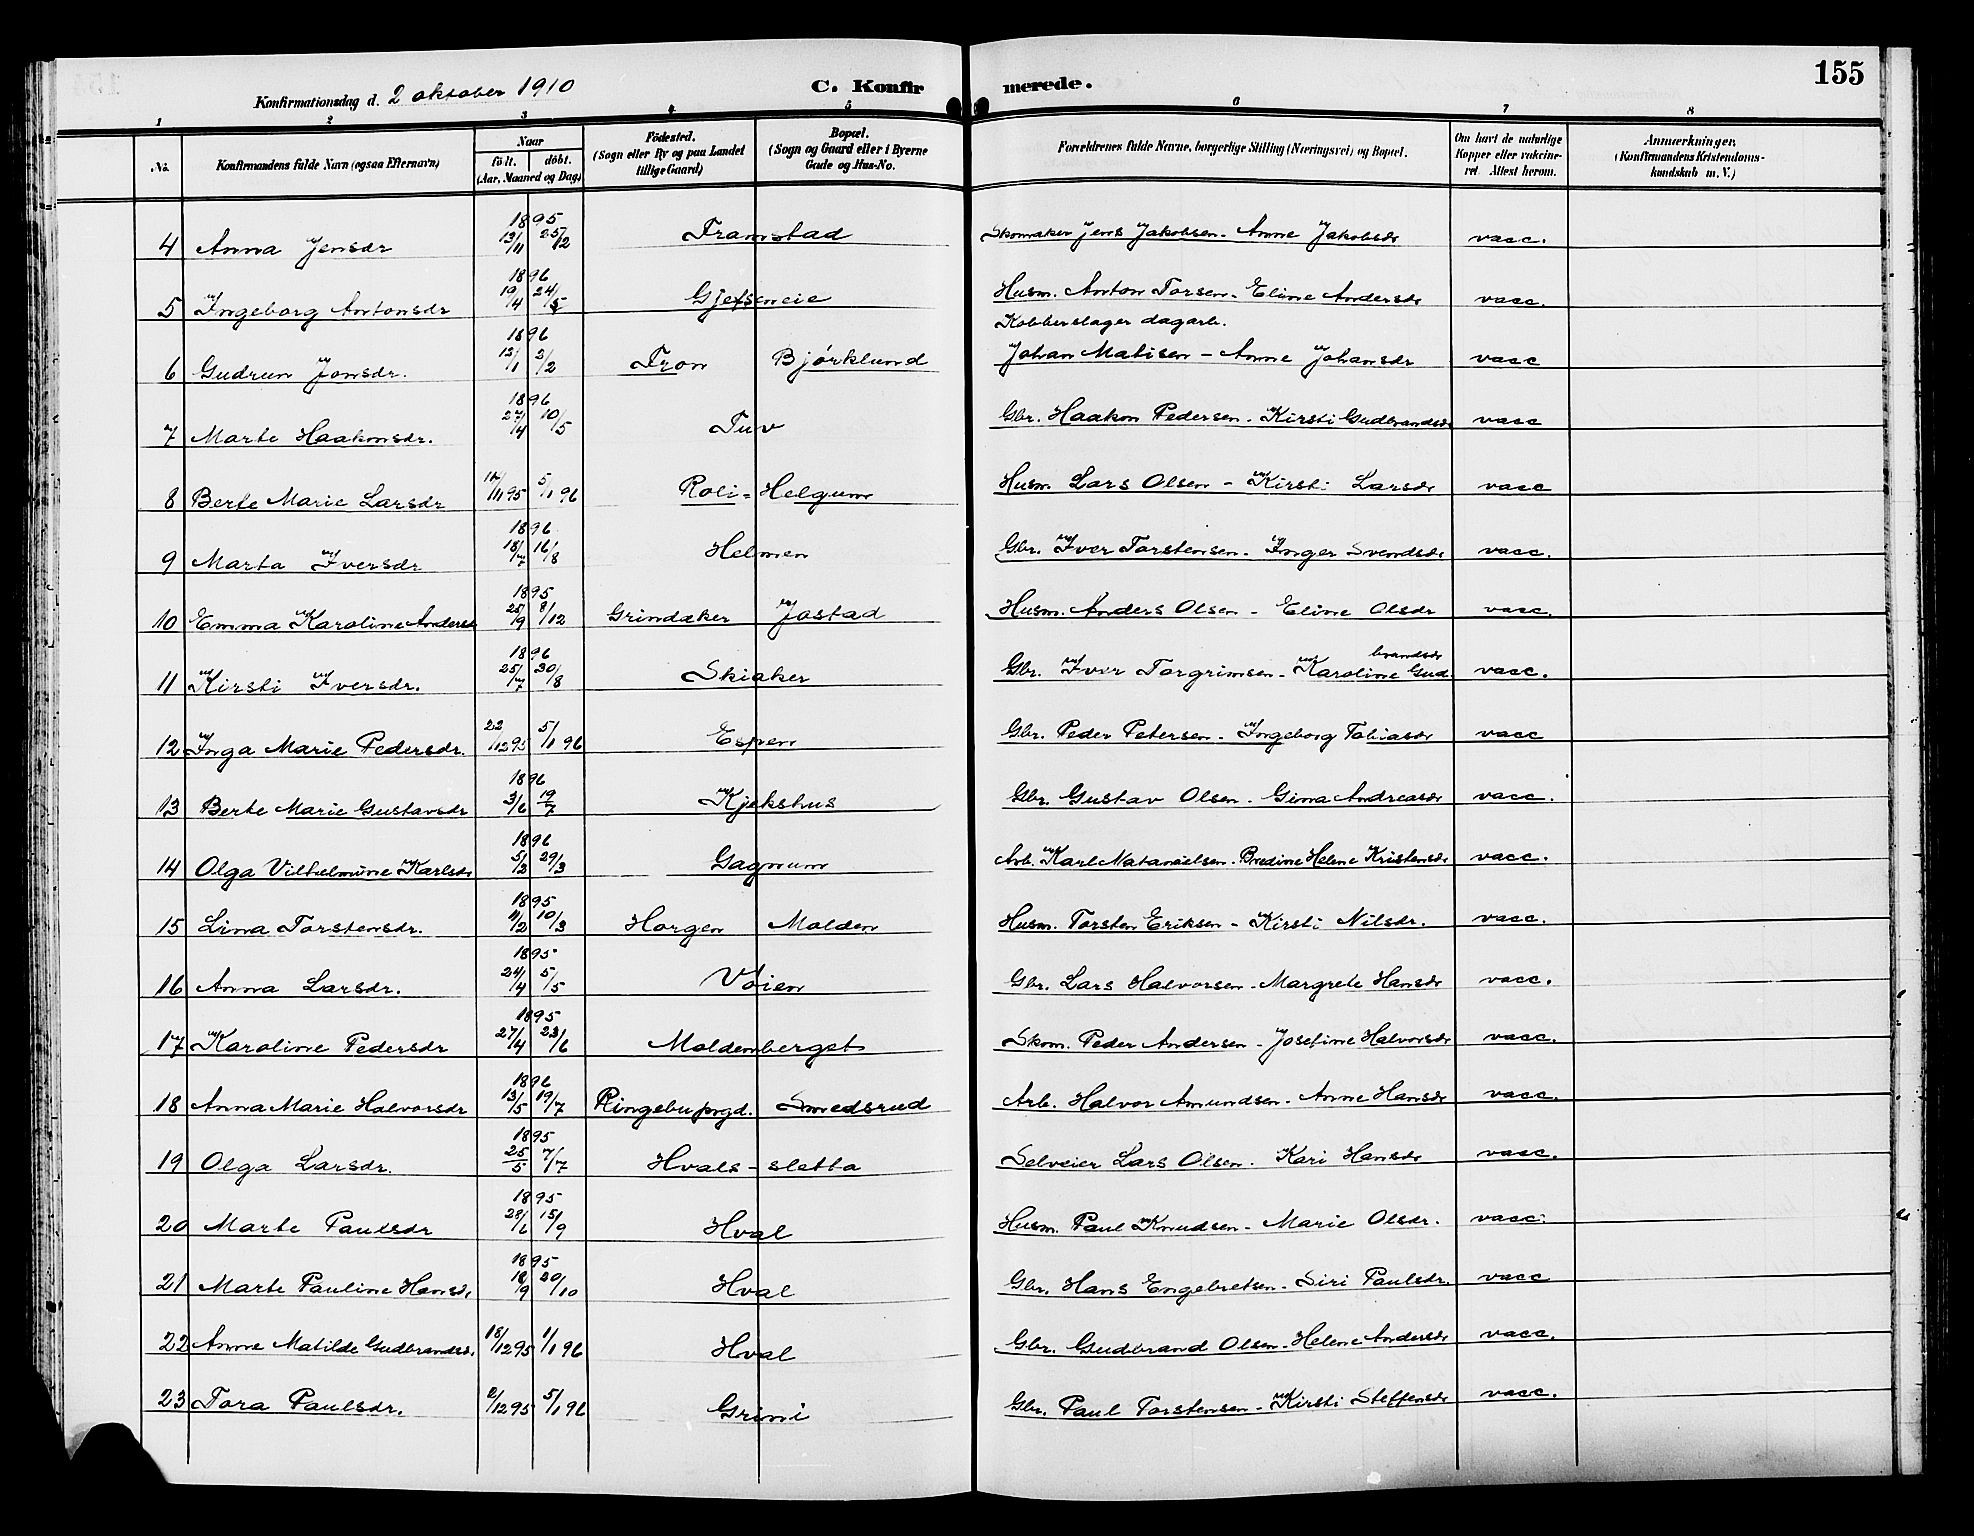 Konfirmationsdag d. 2 oktober 1910 C. Konfirmerede. 155
1 2 3 4 5 6 7 8
No. Konfirmandens fulde Navn (ogsaa Efternavn) Naar født. døbt. (Aar, Maaned og Dag) Födested. (Sogn eller By og paa Landet tillige Gaard) Bopæl. (Sogn og Gaard eller i Byerne Gade og Hus-No. Forældrenes fulde Navne, borgerlige Stilling (Næringsvei) og Bopæl. Om havt de naturlige Kopper eller vakcineret. Attest herom. Anmærkninger. (Konfirmandens Kristendomskundskab m. V.)
4 Anna Jensdr 1895 13/11 25/12 Tramstad Skomaker Jens Jakobsen - Anne Jakobsdr vacc.
5 Ingeborg Antonsdr 1896 19/4 24/5 Gjefseneie Husm. Anton Torsen - Eline Andersdr vacc.
Kobberslager dagarb.
6 Gudrun Jonsdr. 1896 12/1 2/2 Tron Bjørklund Johan Matisen - Anne Johansdr vacc
7 Marte Haakonsdr. 1896 27/4 10/5 Tuv Gbr. Haakon Pedersen - Kirsti Gudbrandsdr vacc
8 Berte Marie Larsdr 14/11 95 5/1 96 Roli - Helgum Husm. Lars Olsen - Kirsti Larsdr vacc
9 Marta Iversdr 1896 18/7 16/8 Helmen Gbr. Iver Torstensen - Inger Svendsdr vacc.
10 Emma Karoline Andersd 1895 25/9 8/12 Grindaker Jostad Husm. Anders Olsen - Eline Olsdr vacc.
11 Kirsti Iversdr. 1896 25/7 30/8 Skiaker Gbr. Iver Torgrimsen - Karoline Gudbrandsdr vacc.
12 Inga Marie Pedersdr. 22/12 95 5/1 96 Espen Gbr. Peder Petersen - Ingeborg Tobiasdr vacc
13 Berte Marie Gustavsdr 1896 3/6 19/7 Kjekshus Gbr. Gustav Olsen - Gina Andreasdr vacc.
14 Olga Vilhelmine Karlsdr 1896 5/2 29/3 Gagnum Arb. Karl Natanaelsen - Bredine Helene Kristensdr vacc.
15 Lina Torstensdr. 1895 11/2 10/3 Horgen Molden Husm. Torsten Eriksen - Kirsti Nilsdr. vacc.
16 Anna Larsdr. 1895 24/4 5/5 Vøien Gbr. Lars Halvorsen - Margrete Hansdr vacc.
17 Karoline Pedersdr 1895 27/4 23/6 Moldenberget Skom. Peder Andersen - Josefine Halvorsdr vacc.
18 Anna Marie Halvorsdr 1896 13/5 19/7 Ringebu prgd. Smedsrud Arb. Halvor Amundsen - Anne Hansdr vacc.
19 Olga Larsdr. 1895 25/5 7/7 Hvals-sletta Selveier Lars Olsen - Kari Hansdr vacc.
20 Marte Paulsdr 1895 28/6 15/9 Hval Husm. Paul Knudsen - Marie Olsdr. vacc.
21 Marte Pauline Hansd. 1895 18/9 20/10 Hval Gbr. Hans Engebretsen - Siri Paulsdr. vacc
22 Anne Matilde Gudbrandsd. 18/12 95 1/1 96 Hval Gbr. Gudbrand Olsen - Helene Andersdr vacc.
23 Tora Paulsdr. 2/12 95 5/1 96 Grini Gbr. Paul Torstensen - Kirsti Steffensdr vacc.